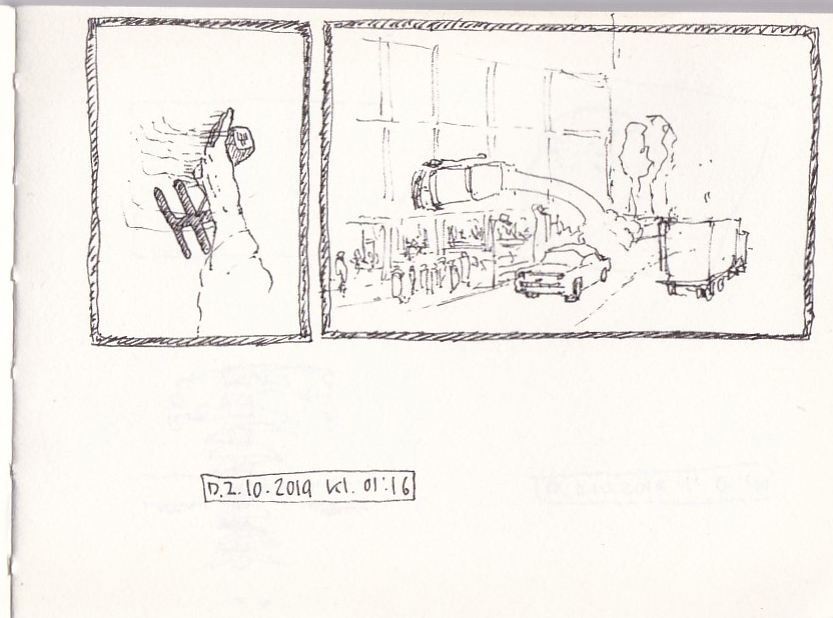 D.2.10.2019 kl. 01:16